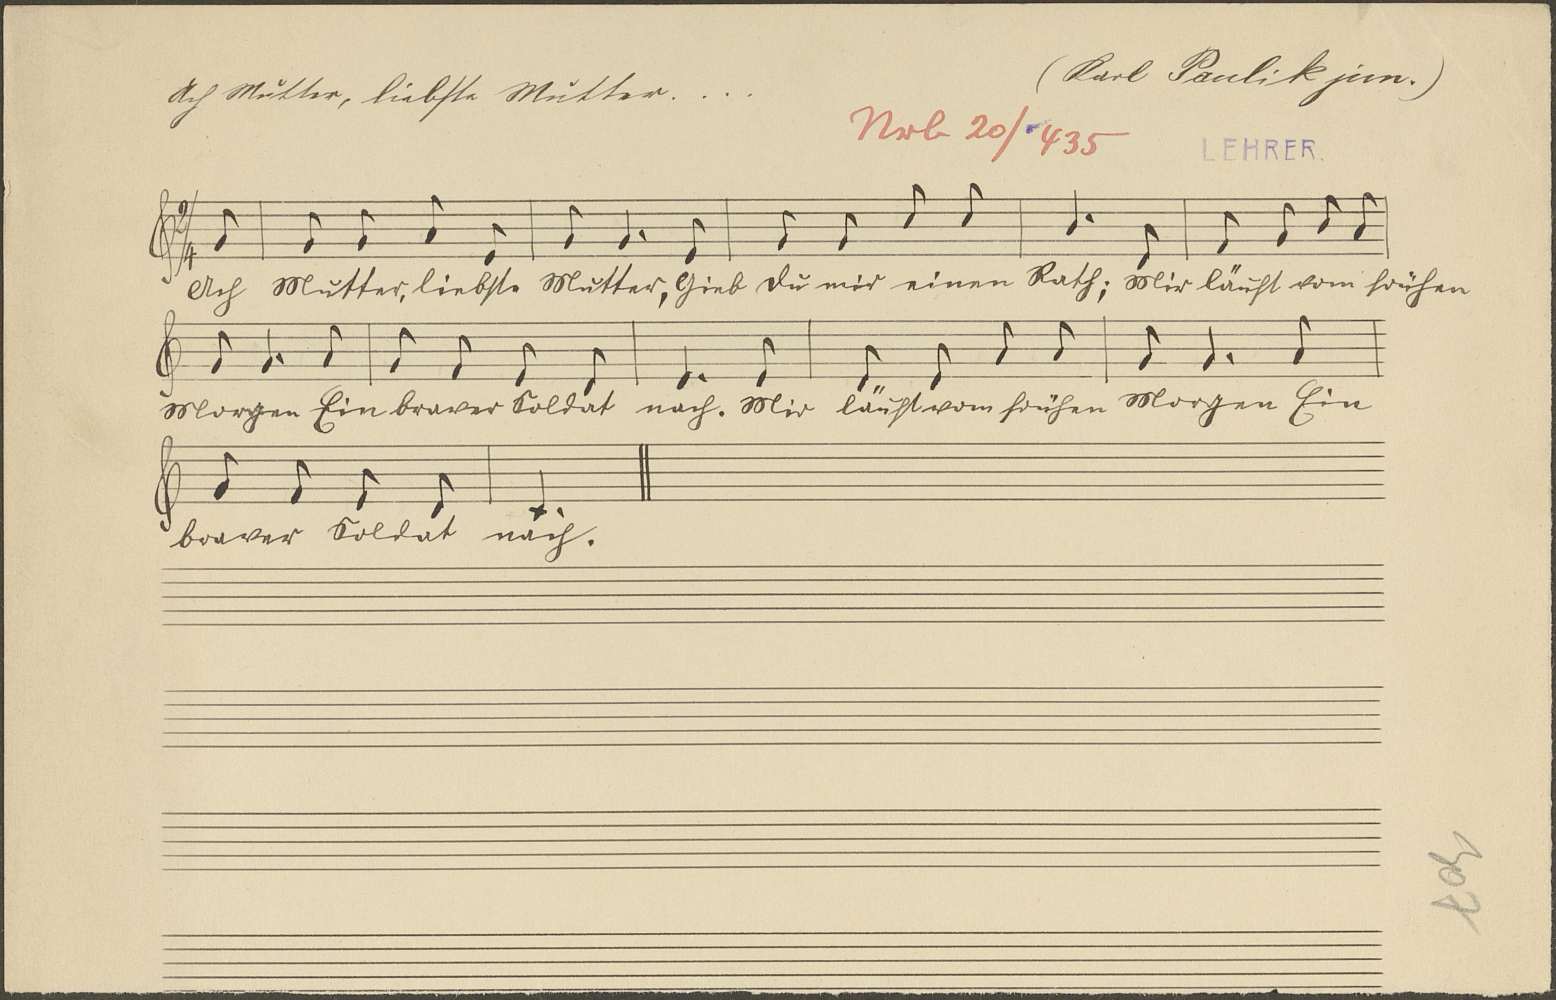 Ach Mutter, liebste Mutter. . . .
(Karl Paulik jun.)
Nrb 20/435
LEHRER.
2/4
Ach Mutter, liebste Mutter, Gieb du mir einen Rath; Mir läuft vom frühen
Morgen Ein braver Soldat nach. Mir läuft vom frühen Morgen Ein
braver Soldat nach.